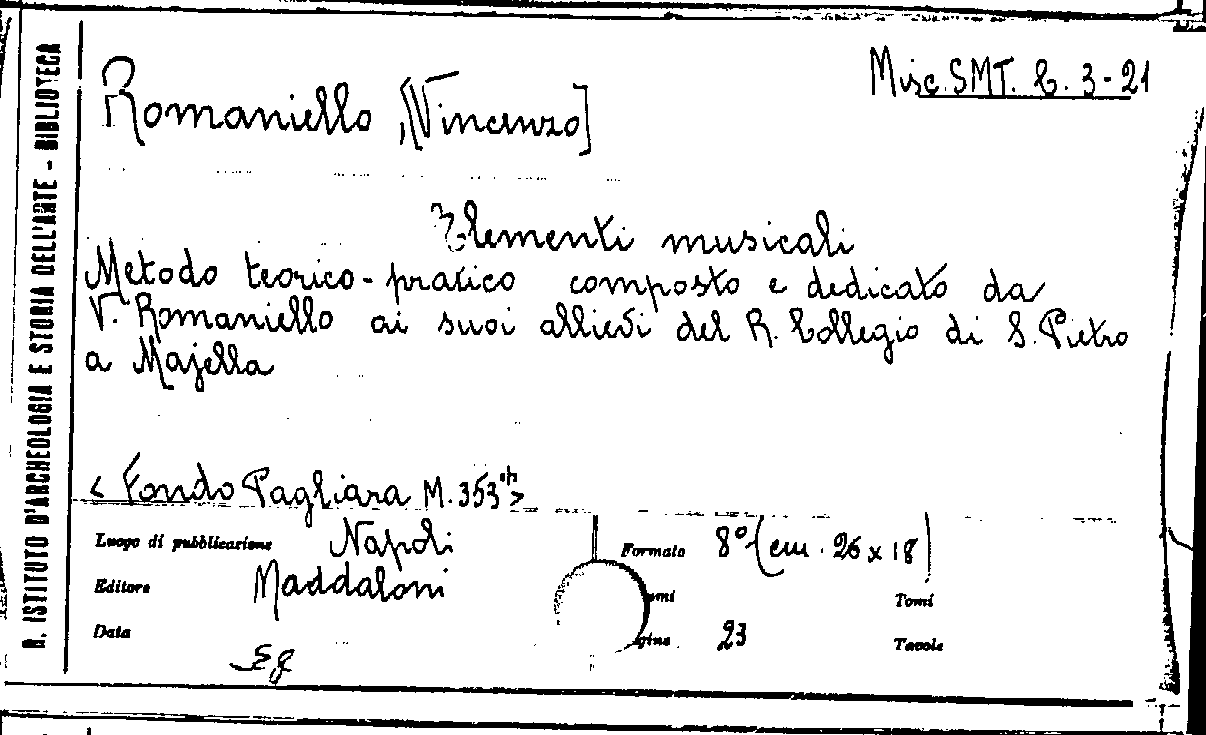 R. ISTITUTO D'ARCHEOLOGIA E STORIA DELL'ARTE - BIBLIOTECA
Misc. SMT. C. 3-21
Romaniello, [Vincenzo]
Elementi musicali
Metodo teorico-pratico composto e dedicato da
V. Romaniello ai suoi allievi del R. Collegio di S. Pietro
a Majella
< Fondo Pagliara M. 353 >
Luogo di pubblicazione Napoli Formato 8° (cm. 26 x 18)
Editore Maddaloni umi Tomi
Data gine 23 Tavole